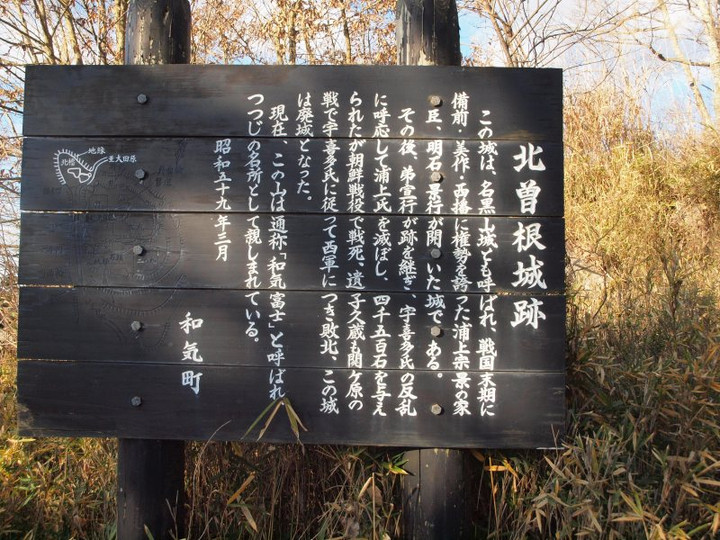 北曽根城跡
この城は、名黒山城とも呼ばれ、戦国末期に
備前・美作・西播に権勢を誇った浦上宗景の家
臣、明石景行が開いた城である。
その後、弟宣行が跡を継ぎ、宇喜多氏の反乱
に呼応して浦上氏を滅ぼし、四千五百石を与え
られたが朝鮮戦役で戦死、遺子久蔵も関ケ原の
戦で宇喜多氏に従って西軍につき敗北、この城
は廃城となった。
現在、この山は通称「和気富士」と呼ばれ
つつじの名所として親しまれている。
昭和五十九年三月
和気町
地縁
至大田原